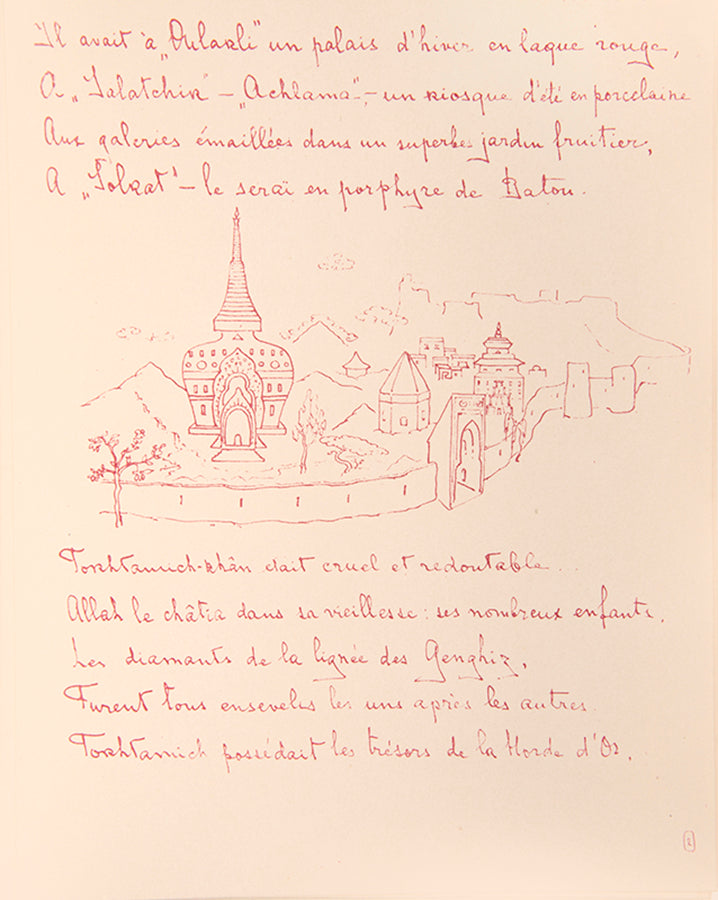 Il avait à „Oulakli" un palais d'hiver en laque rouge,
A „Salatchik" – „Achlama", – un kiosque d'été en porcelaine
Aux galeries émaillées dans un superbes jardin fruitier,
A „Solkat" – le seraï en porphyre de Batou.
Tokhtamich-khân etait cruel et redoutable...
Allah le châtia dans sa vieillesse: ses nombreux enfants,
Les diamants de la lignée des Genghiz,
Furent tous ensevelis les uns après les autres.
Tokhtamich possédait les trésors de la Horde d'Or,
2